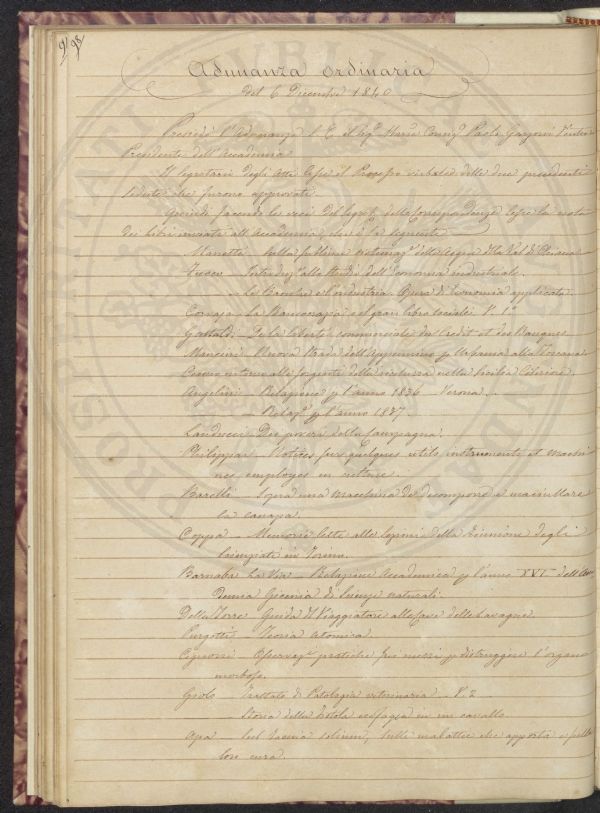 98
Adunanza Ordinaria
del 6 Dicembre 1840
Presiedè l'Adunanza S. E. il Sig. March. Paolo
Presidente dell'Accademia
Il Segretario degli Atti lesse il Processo verbale delle due precedenti
sedute che furono approvati.
Quindi facendo le veci del Segret. delle Corrispondenze lesse la nota
dei Libri inviati all'Accademia, che è la seguente
Manetti – sulla delle Acque della Val di Chiana
Zucco – Introduz.e allo studio dell'Economia industriale.
– Le Banche e l'industria. Opera di Economia applicata.
– La Bancocrazia e il gran libro sociale V. 1.
Gastaldi – De la liberté commerciale du Credit et des Banques
Mancini – Nuova Strada dell'Appennino p.
intorno alle sorgenti della ricchezza nella Sicilia Citeriore
Angelini – Relazione p. l'anno 1836 – Verona.
– Relaz.e p. l'anno 1837
Landucci – Dei poveri della Campagna.
Philippar – Notices sur quelques utils, instruments et machi
nes employés en
Barelli – Sopra una macchina di decomporre e maciullare
la canapa.
Coppa – Memorie lette alle sezioni della Riunione degli
Scienziati in Torino.
Barnaba La Via – Relazione Accademica p. l'anno XVI dell'Acca
demia Gioenia di Scienze naturali.
Della Torre – Guida del Viaggiatore alle Cave della Lavagne.
Purgotti – Teoria atomica.
– Osservaz.i pratiche sui mezzi p. distruggere l'organo
morboso.
– Trattato di Patologia veterinaria – V. 2
– Storia della fistola esofagea in un cavallo
– Sul Secnia Solium, sulle malattie che apporta e sulla
loro cura.